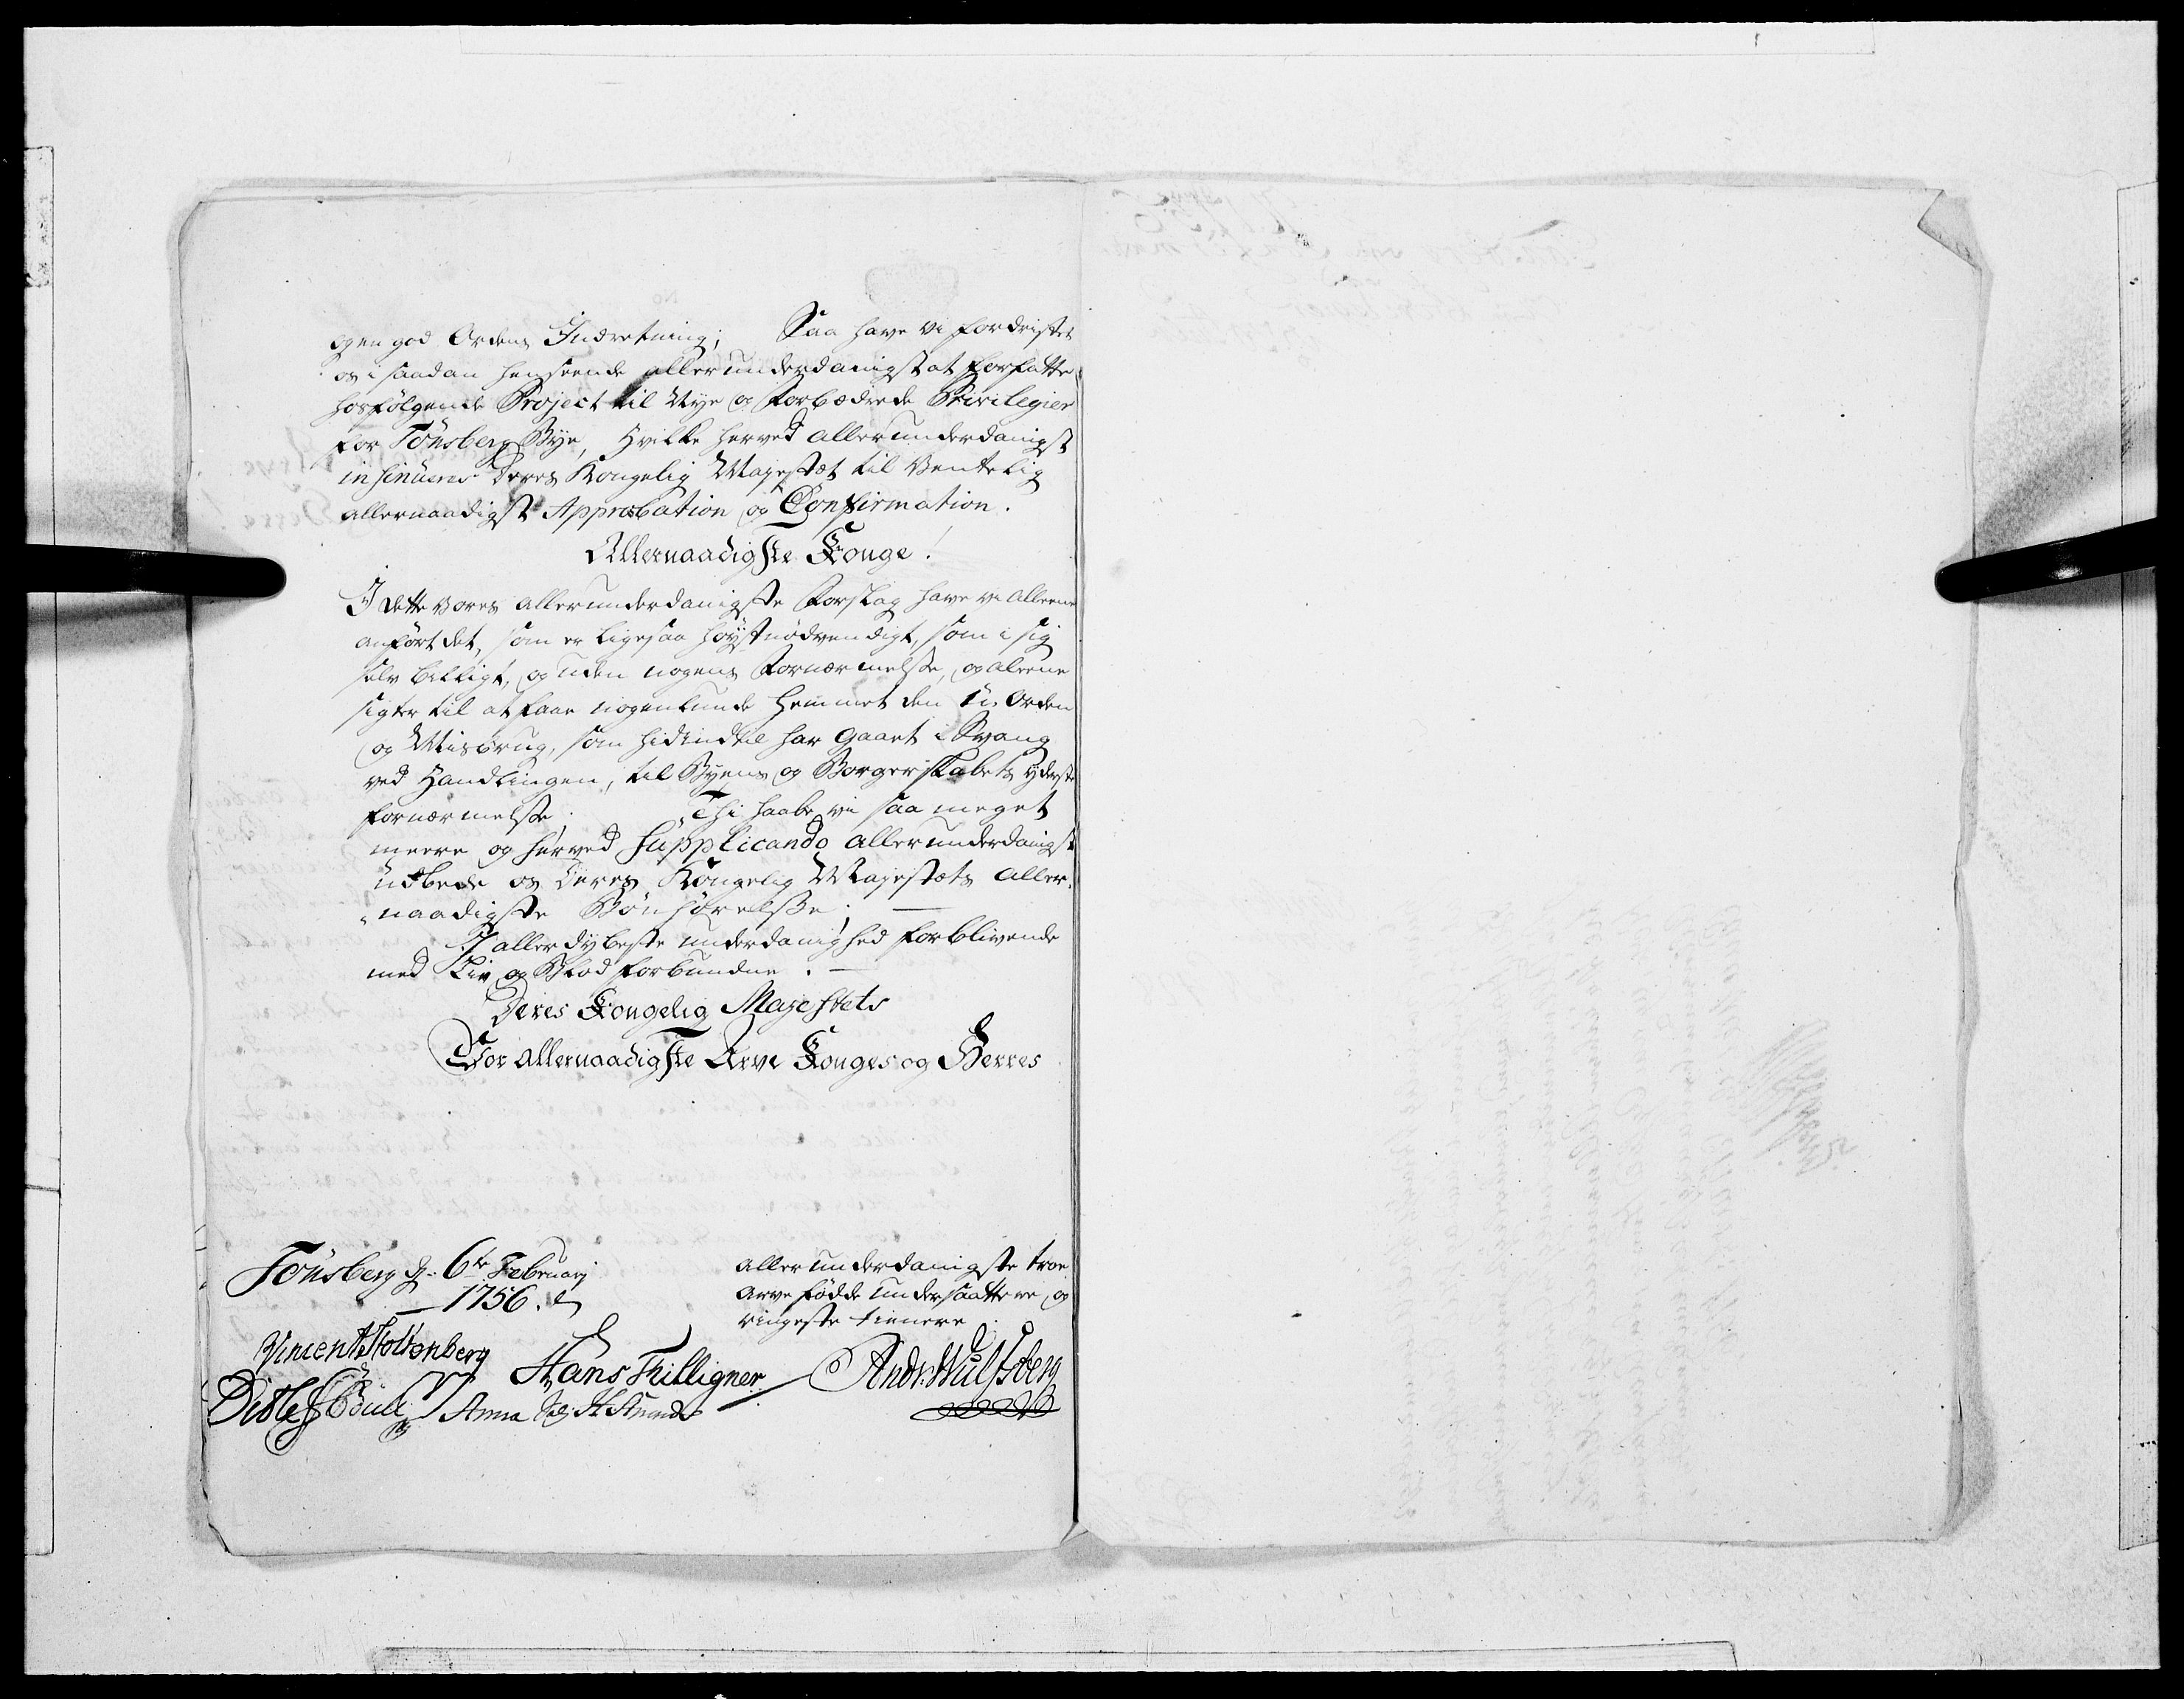 og en god Ordens Indretning; Saa have vi fordristet
os i saadan henseende allerunderdanigst at forfatte
hosfølgende Project til Nye og Forbædrede Privilegier
for Tönsberg Bye, Hvilke herved allerunderdanigst
insinueres Deres Kongelig Mayestæt til Ventelig
allernaadigst Approbation og Confirmation.
Allernaadigste Konge!
I dette vores allerunderdanigste Forslag have vi alleene
anført det, som er ligesaa høystnødvendigt, som i sig
selv billigt, og uden nogens Fornærmelse, og aleene
sigter til at faae nogenlunde hemmet den U-orden
og Misbrug, som hidindtil har gaaet i Svang
ved Handlingen, til Byens og Borgerskabets yderste
fornærmelse; Thi haabe vi saa meget
meere og herved supplicando allerunderdanigst
udbede os Deres Kongelig Mayestæts aller-
naadigste Bönhørelse; —
I aller dybeste underdanighed forblivende
med Liv og Blod forbundne. —
Deres Kongelig Majestets
Vor allernaadigste Arve Konges og Herres
Tönsberg d: 6te Februarj
1756.
allerunderdanigste troe
arve fødde undersaattere og
ringeste tienere
Vincent Stoltenberg
Hans Thilligner
Andr: Wulfsberg
Ditlef
Anna